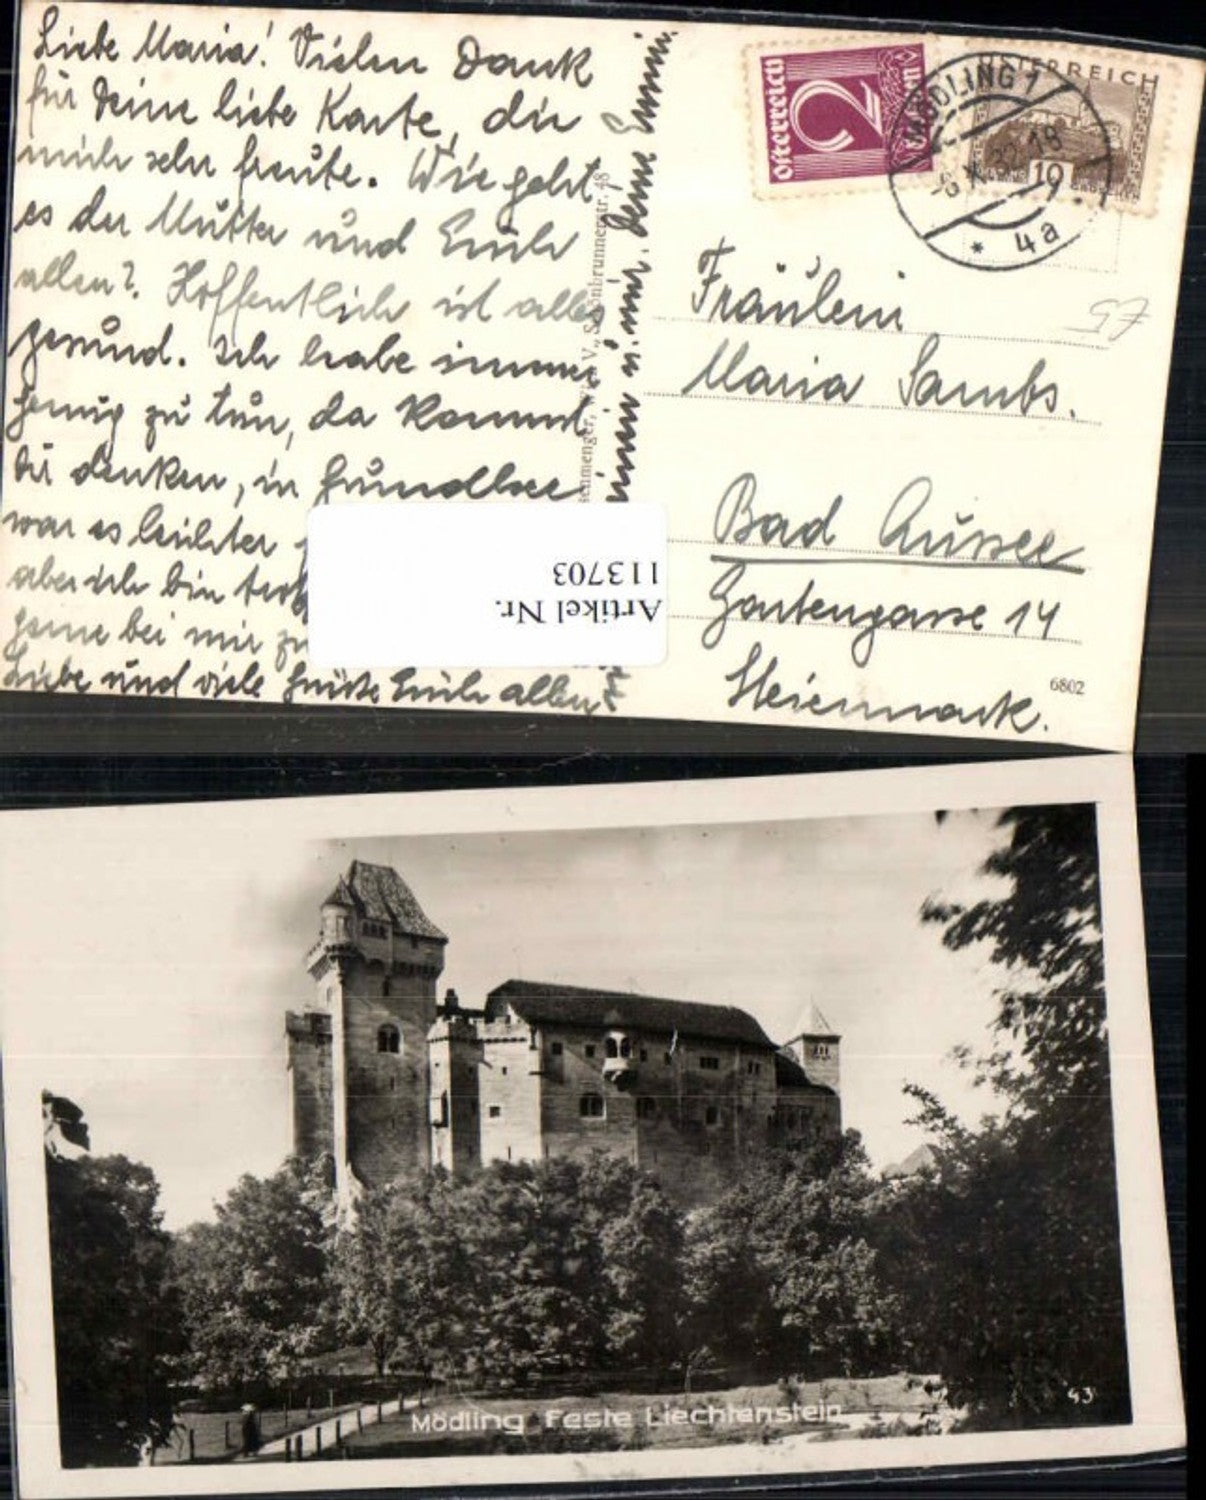 Liebe Maria! Vielen Dank
für Deine liebe Karte, die
mich sehr freute. Wie geht
es der Mutter und Euch
allen? Hoffentlich ist alles
gesund. Ich habe immer
genug zu tun, da kommt
zu denken, in Grundlsee
war es leichter
aber ich bin trotz
gerne bei mir zu
Liebe und viele Grüße Euch allen
Deine Emmi.
48
Österreich
2
ÖSTERREICH
10
MÖDLING 1
32 18
* 4a
Fräulein
Maria Sambs.
Bad Aussee
Gartengasse 14
Steiermark.
6802
Artikel Nr.
113703
Mödling Feste Liechtenstein
43